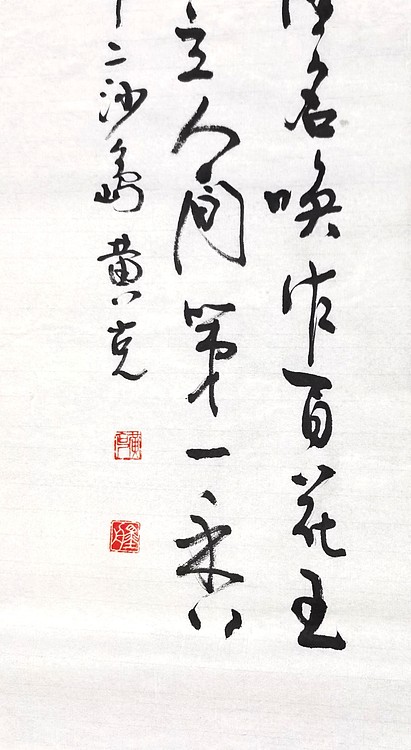 名喚作百花王
立人间第一香
二沙島 黄克